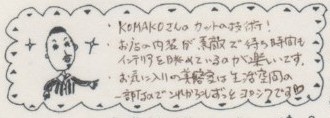 ・KOMAKOさんのカットの技術！
・お店の内装が素敵で待ち時間も
インテリアを眺めているのが楽しいです。
・お気に入りの美容室は生活空間の
一部なのでこれからもずっとヨロシクです